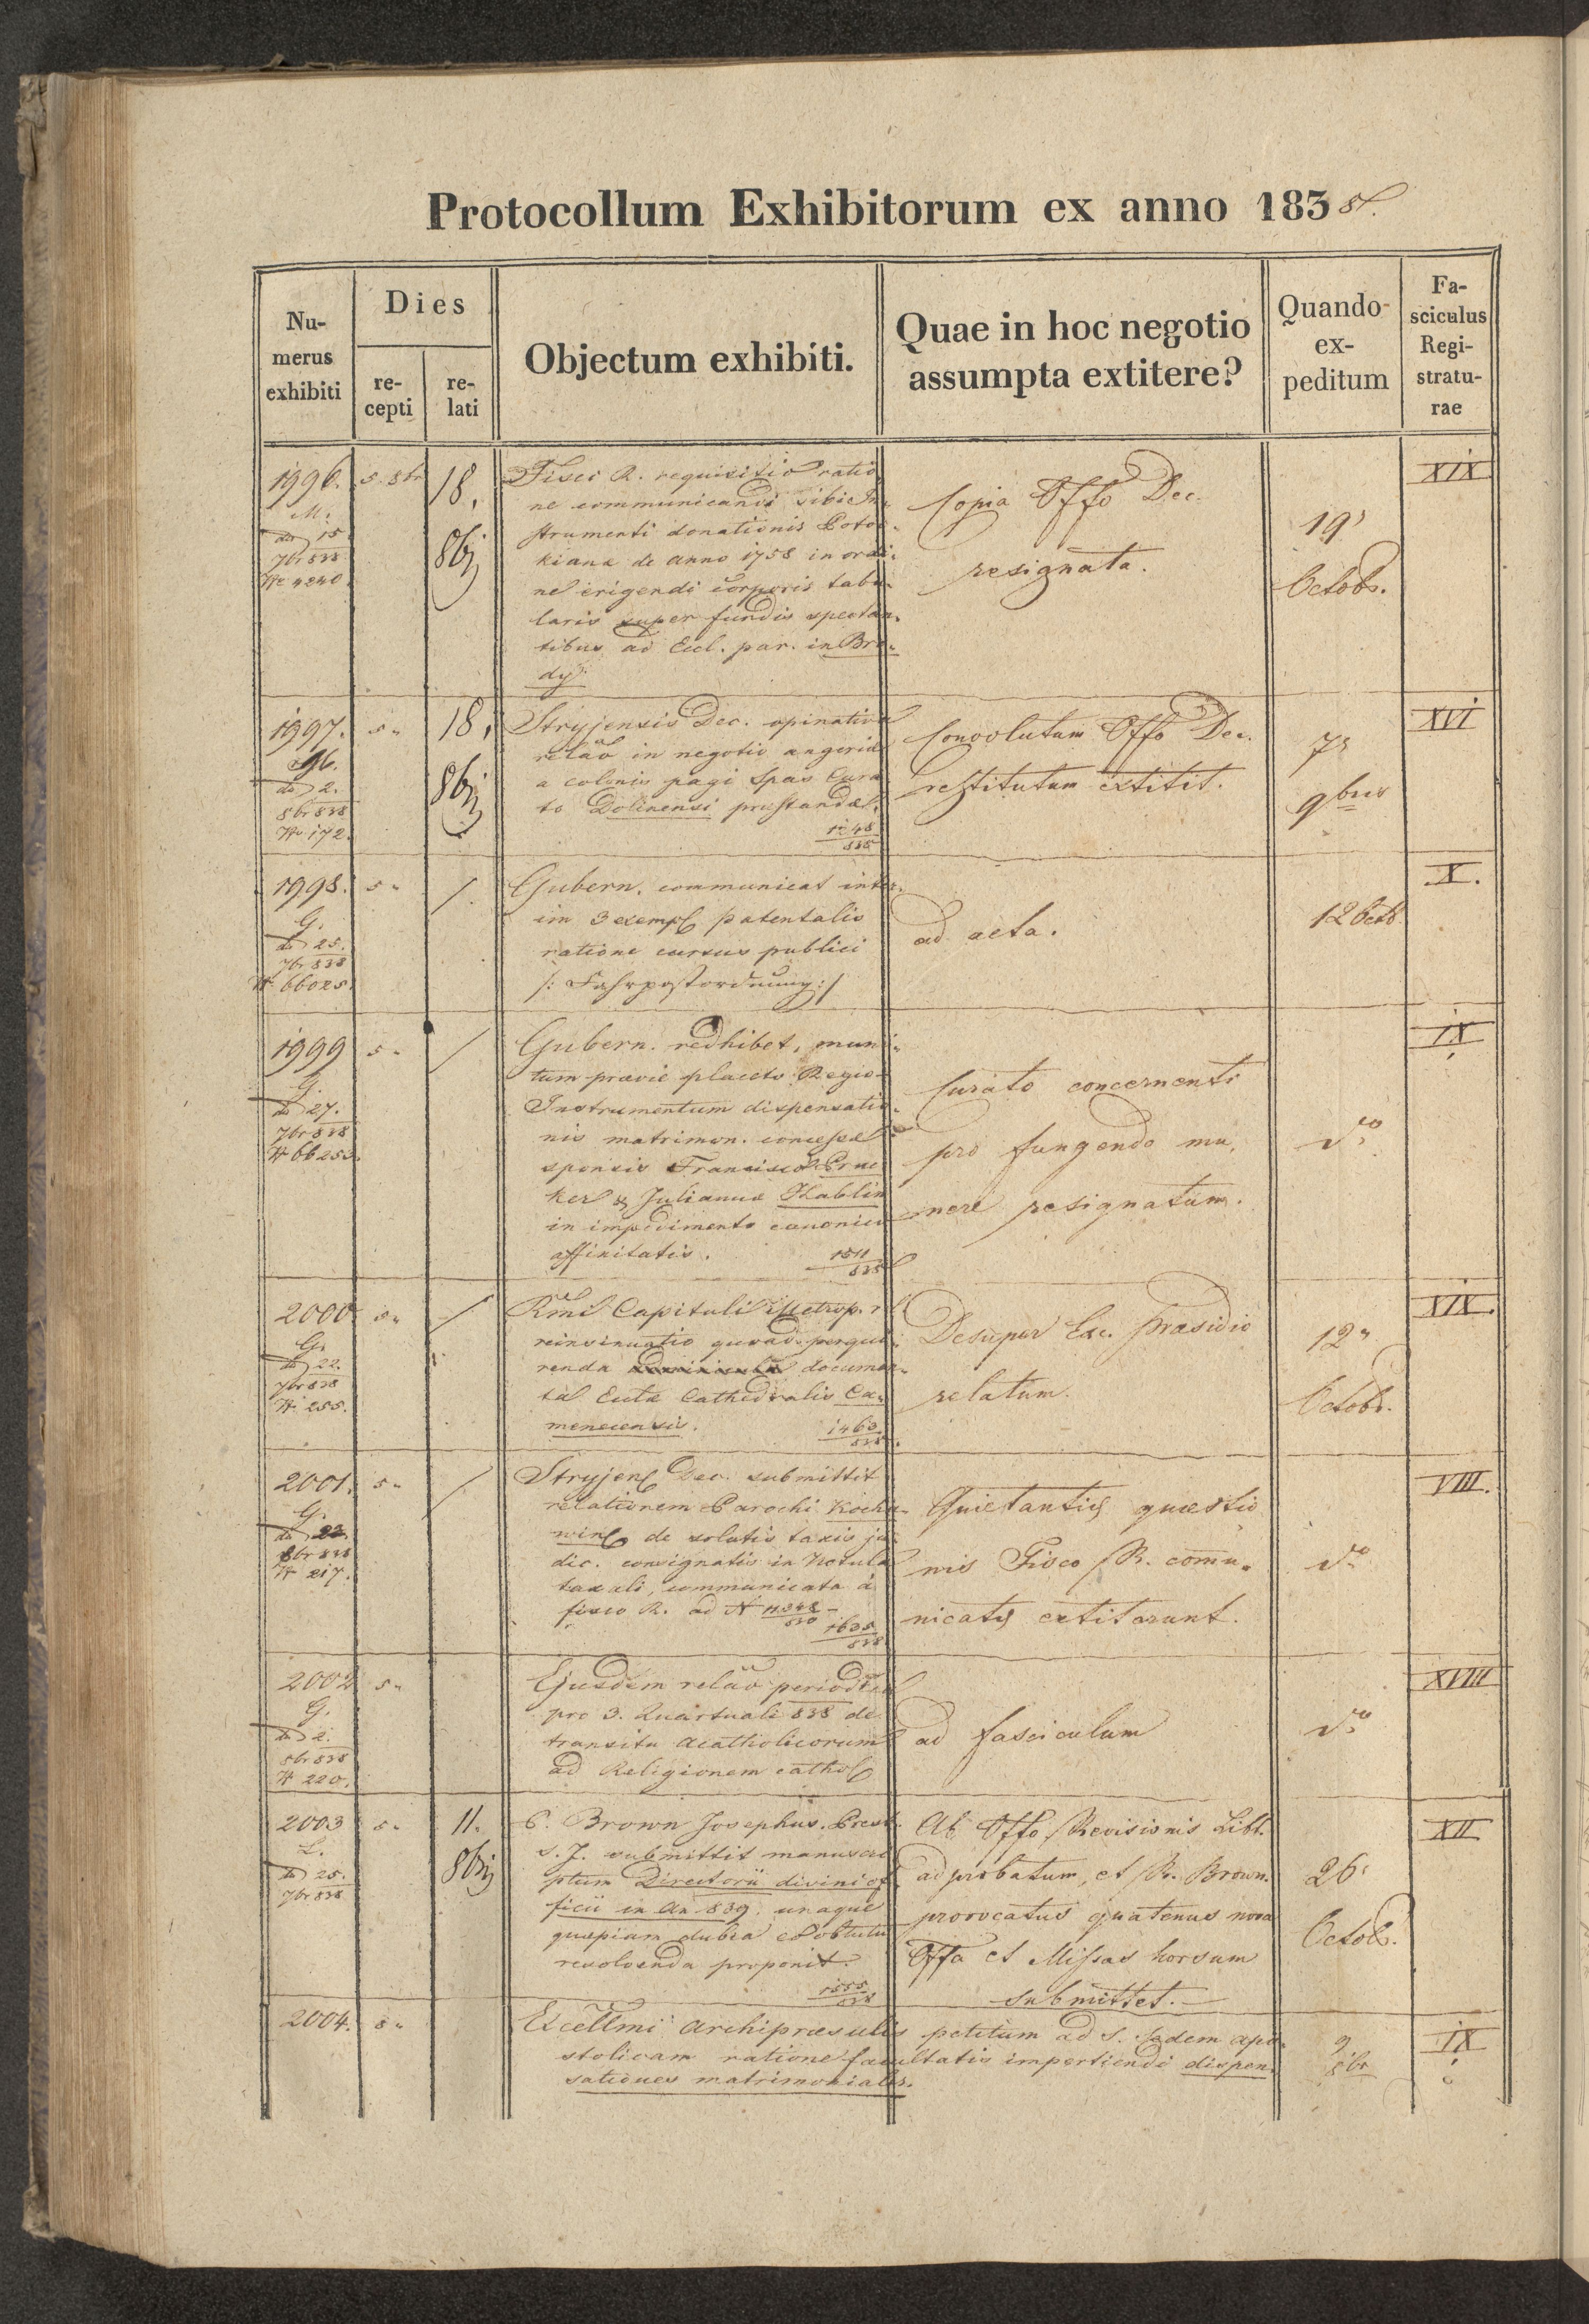 Protocollum Exhibitorum ex anno 1838.
Numerus exhibiti
Dies
recepti
relati
Objectum exhibiti.
Quae in hoc negotio assumpta extitere?
Quando expeditum
Fasciculus Registraturae
1996.
M.
dd 15
7br 838
Nr 4240
5. 8br
18.
8bj
Fisci R. requisitio ratio
ne communicandi sibi In
strumenti donationis Potoc
kiana de anno 1758 in ordi
ne erigendi corporis tabu
laris super fundis spectan
tibus ad Eccl. par. in Bro
dy.
Copia Offo Dec.
resignata.
19
Octob.
XIX
1997.
dd 2.
8br 838
Nr. 172.
5 "
18.
8bj
Stryjensis Dec. opinativa
relao in negotio angeriae
a colonis pagi Spas Cura
to Dolinensi praestandae.
1248
838
Convolutum Offo Dec.
restitutum extitit.
7
9bris
XVI
1998.
G.
dd 25.
7br 838
Nr 66025.
5 "
/.
Gubern. communicat inter
im 3 exempl patentalis
ratione cursus publici
/: Fahrpostordnung :/
ad acta.
12 Octb
X.
1999
G.
dd 27.
7br 838
5 "
/
Gubern. redhibet, muni
tum praevie placeto Regio
Instrumentum dispensatio
nis matrimon. concessae
sponsis Francisco Pruc
ker & Julianna
in impedimento canonico
affinitatis.
1511
838
Curato concernenti
pro fungendo mu,
nere resignatum.
do
IX
2000
G.
dd 22.
7br 838
Nr. 255.
5 "
/
Rmi Capituli Metrop. r. l.
reinsinuatio quoad perqui
renda documen
ta Eccla Cathedralis Ca
menecensis.
1463
838
Desuper Exc. Praesidio
relatum.
12 "
Octob.
XIX.
2001.
G.
dd 22.
8br 838
Nr 217.
5 "
/
Stryjens Dec. submittit
relationem Parochi Kocha
wins de solutis taxis ju
dic. consignatis in Notula
taxali, communicata à
fisco R. ad N 11348
830
1635
838
Quietantias quaestio
nis Fisco R. commu
nicatas extiterunt.
do
VIII.
2002
G.
dd 2.
8br 838
Nr 220.
5 "
Ejusdem relao periodica
pro 3. Quartuali 838 de
transitu acatholicorum
ad Religionem cathol
ad fasciculum
do
XVIII
2003
L.
dd 25.
7br 838
5 "
11.
8bj
P. Brown Josephus. Presb.
S. J. submittit manuscri
ptum Directorii divini of
ficii in An 839. unaque
quaepiam dubia
resolvenda proponit.
1555
838
Ab Offo Revisionis Libr.
adprobatum, et R. Brown.
provocatus quatenus nova
Offa et Missas horsum
submittet. —
26
Octob.
XII.
2004.
5 "
Excellmi Archipraesulis petitum ad S. Sedem apo
stolicam ratione facultatis impertiendi dispen
sationes matrimoniales.
9
8br
IX